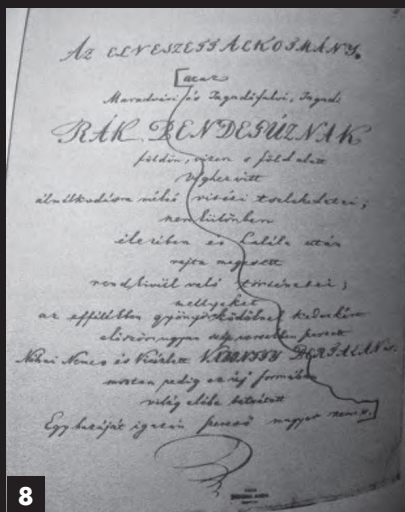 AZ ELVESZETT ALKOTMÁNY.
[azaz
Maradvári és Tagadófalvi, Tagadi
RÁK BENDEGÚZNAK
földön, vizen s föld alatt
véghezvitt
álmélkodásra méltó vitézi tselekedetei;
nem különben
életében és halála után
rajta megesett
rendkivül való történetei;
mellyeket
az effélékben gyönyörködőknek kedvekért
először ugyan szép versekben
Néhai Nemes és Vitézlett
mostan pedig az új formában
világ elébe botsátott
Egy hazáját igazán szerető magyar nemes.]
8